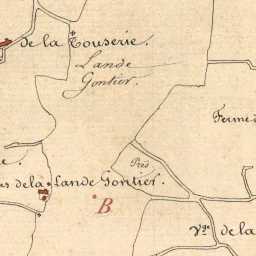 de la Touserie.
Lande
Gontier
Ferme d
Prés
de la Lande Gontier.
B
V.ge de la